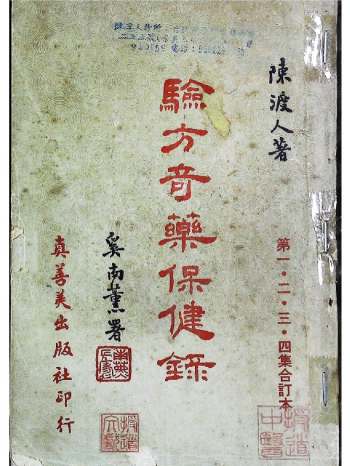 陳渡人著
驗方奇藥保健錄
第一·二·三·四集合訂本
奚南薰署
真善美出版社印行